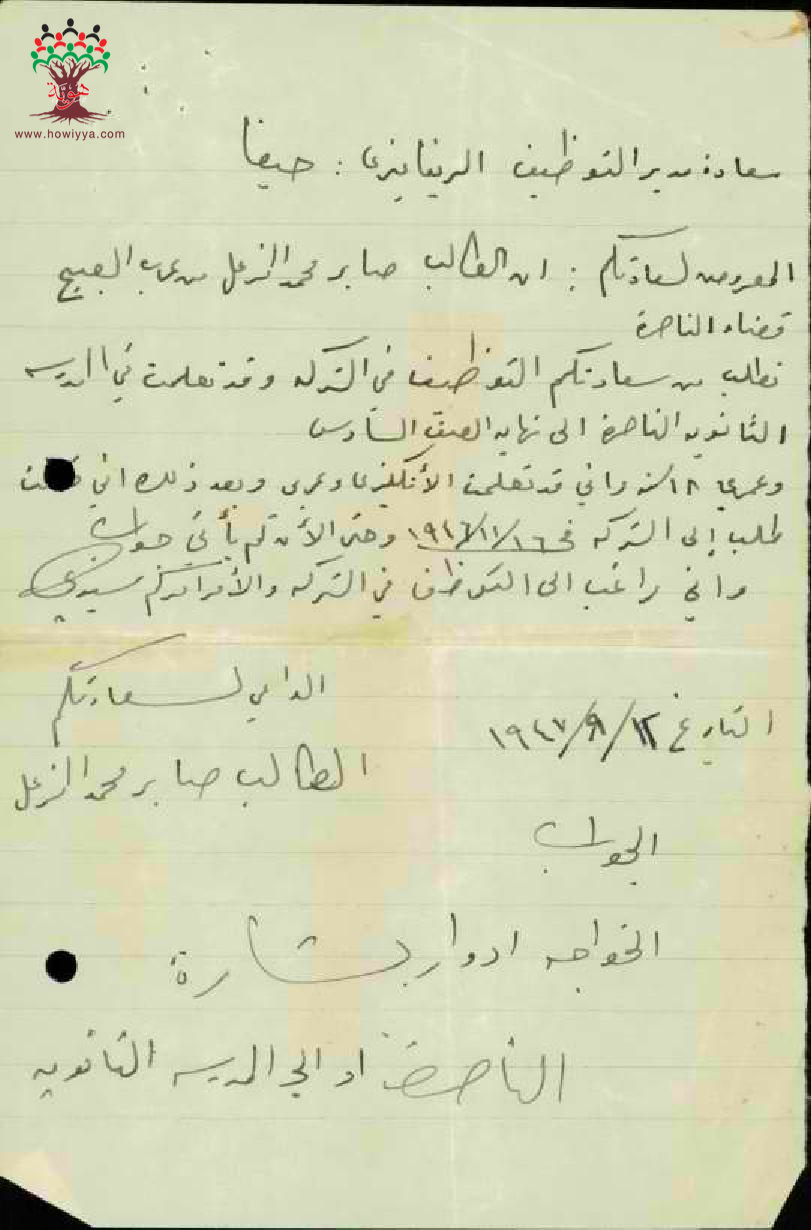 هوية
www.howiyya.com
سعادة مدير التوظيف الريفاينري : حيفا
المعروض لسعادتكم : ان الطالب صابر محمد المزعل من عرب الصبيح
قضاء الناصرة
نطلب من سعادتكم التوظيف في الشركه وقد تعلمت في المدرسه
الثانويه الناصرة الى نهايه الصف السادس
وعمري ١٨ سنه واني قد تعلمت الأنكليزي وعربي وبعد ذلك اني
طلب إلى الشركه في ١٩٤٦/١١/١٦ وحتى الأن لم يأتي جواب
واني راغب الى التوظف في الشركه والأمر امركم سيدي
الداعي لسعادتكم
التاريخ ١٩٤٧/٩/١٢
الطالب صابر محمد المزعل
الجواب
الخواجه ادوار بشارة
الناصرة او الى المدرسه الثانويه